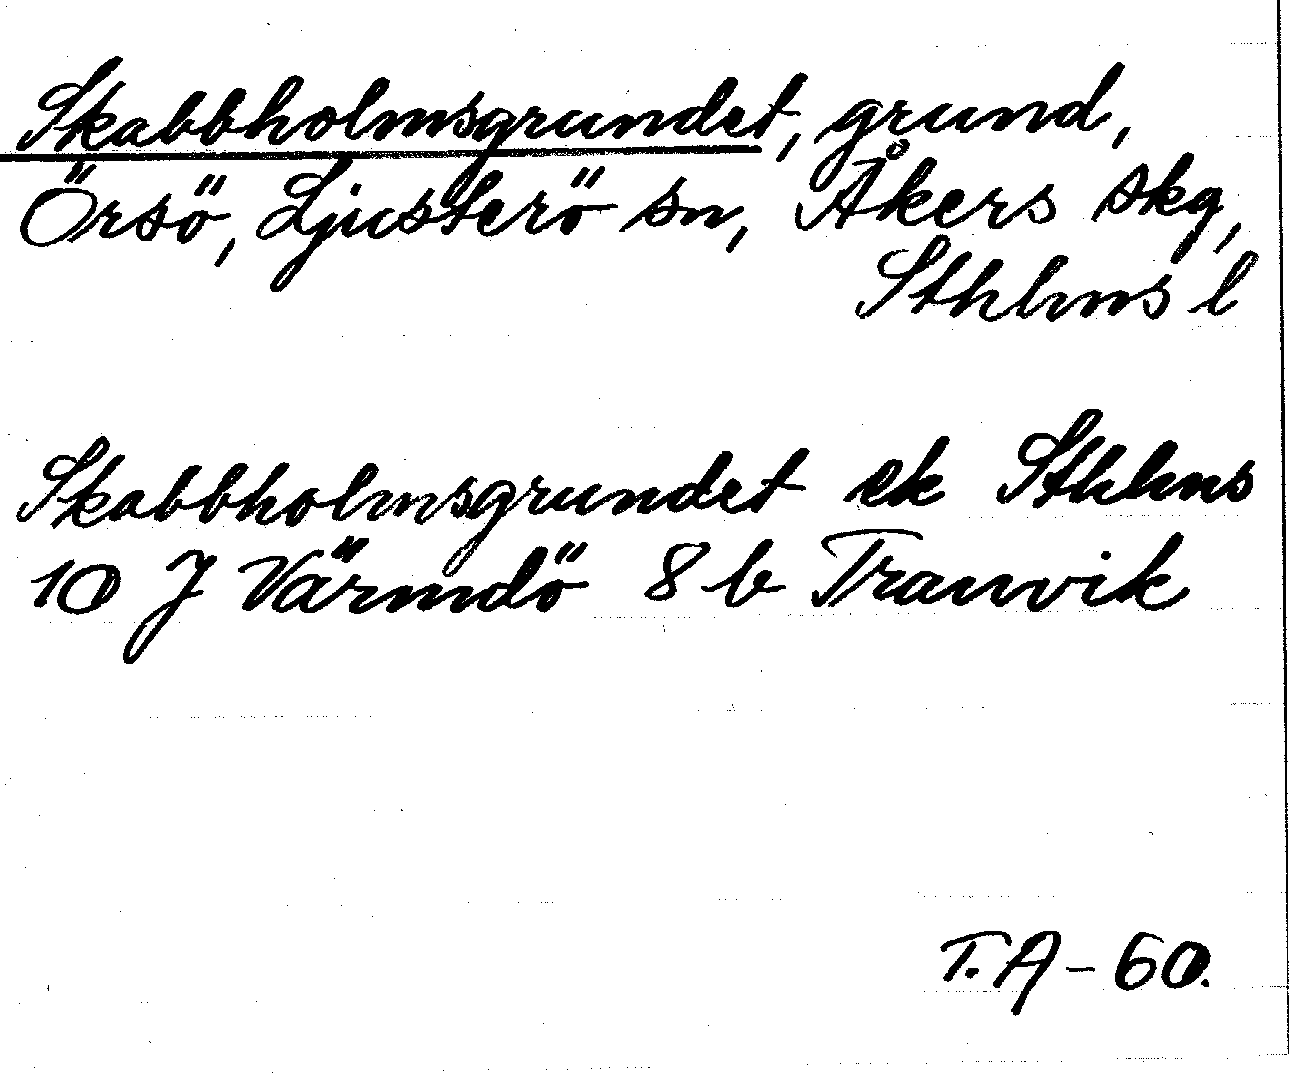 Skabbholmsgrundet, grund,
Örsö, Ljusterö sn, Åkers skg,
Sthlms l
Skabbholmsgrundet ek Sthlms
10 J Värmdö 8 b Tranvik
T.A - 60.